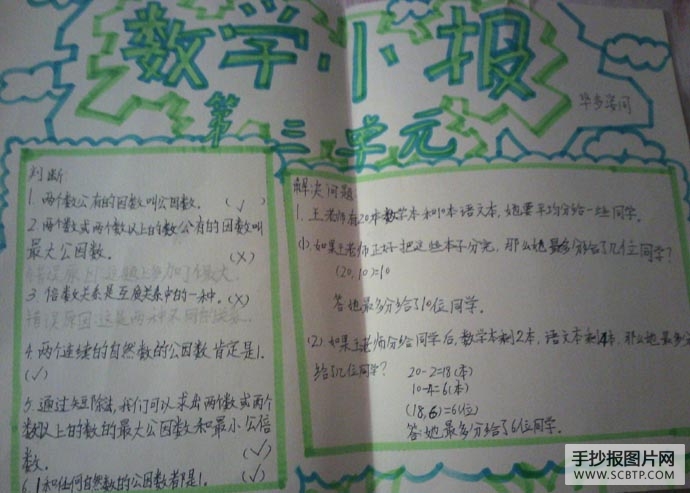 数学小报
第三单元
华乡姿问
判断:
1. 两个数公有的因数叫公因数。 (√)
2. 两个数或两个数以上的数公有的因数叫
最大公因数。 (X)
错误原因:这题上多加了最大
3. 倍数关系是互质关系中的一种。(X)
错误原因:这是两种不同的
4. 两个连续的自然数的公因数肯定是1.
(√)
5. 通过短除法,我们可以求出两个数或两个
数以上的数的最大公因数和最小公倍
数。 (√)
6. 1和任何自然数的公因数都是1. (√)
解决问题:
1. 王老师有20本数学本和10本语文本,她要平均分给一些同学。
(1).如果王老师正好把这些本子分完,那么她最多分给了几位同学?
(20,10)=10
答:她最多分给了10位同学。
(2).如果王老师分给同学后,数学本剩2本,语文本剩4本,那么她最多分
给了几位同学? 20-2=18(本)
10-4=6(本)
(18,6)=6(位)
答:她最多分给了6位同学。
手抄报图片网
WWW.SCBTP.COM